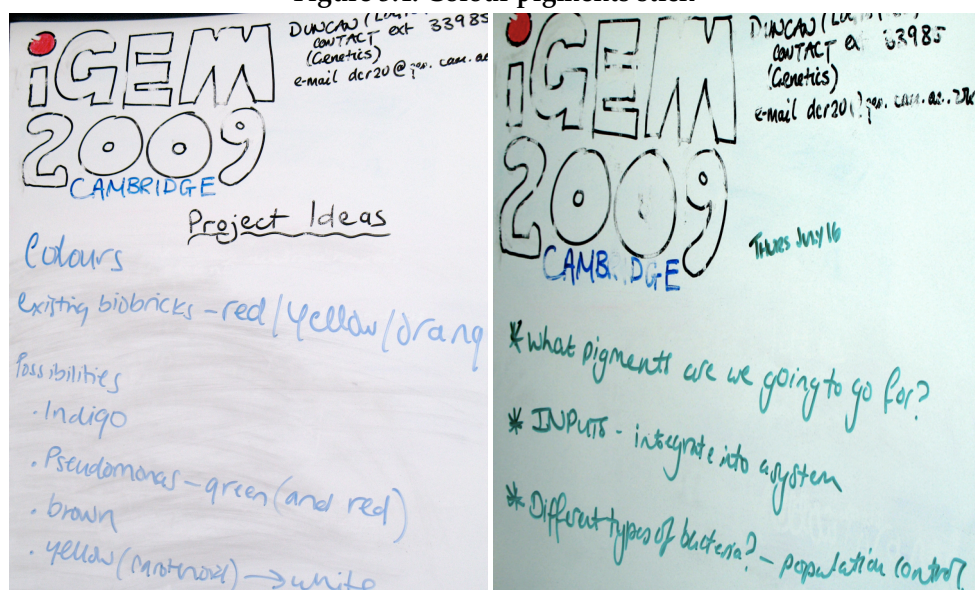 DUNCAN (
CONTACT ext 33985
(Genetics)
e-mail dcr20@gen.cam.ac
iGEM
2009
CAMBRIDGE
Project Ideas
Colours
existing biobricks - red / yellow / orang
Possibilities
. Indigo
. Pseudomonas - green (and red)
. brown
. yellow (carotenoid) → white
DUNCAN (
CONTACT ext 33985
(Genetics)
e-mail dcr20 gen.cam.ac.uk
iGEM
2009
CAMB DGE
THURS JULY 16
* What pigments are we going to go for?
* INPUTS - integrate into a system
* Different types of bacteria? - population control